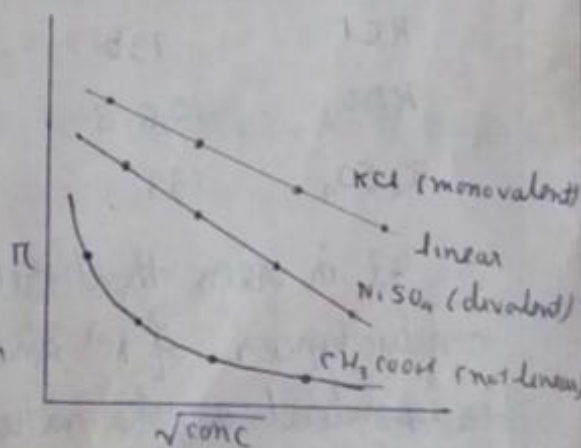 KCl (monovalent)
linear
Π
NiSO₄ (divalent)
CH₃COOH (not linear)
√conc